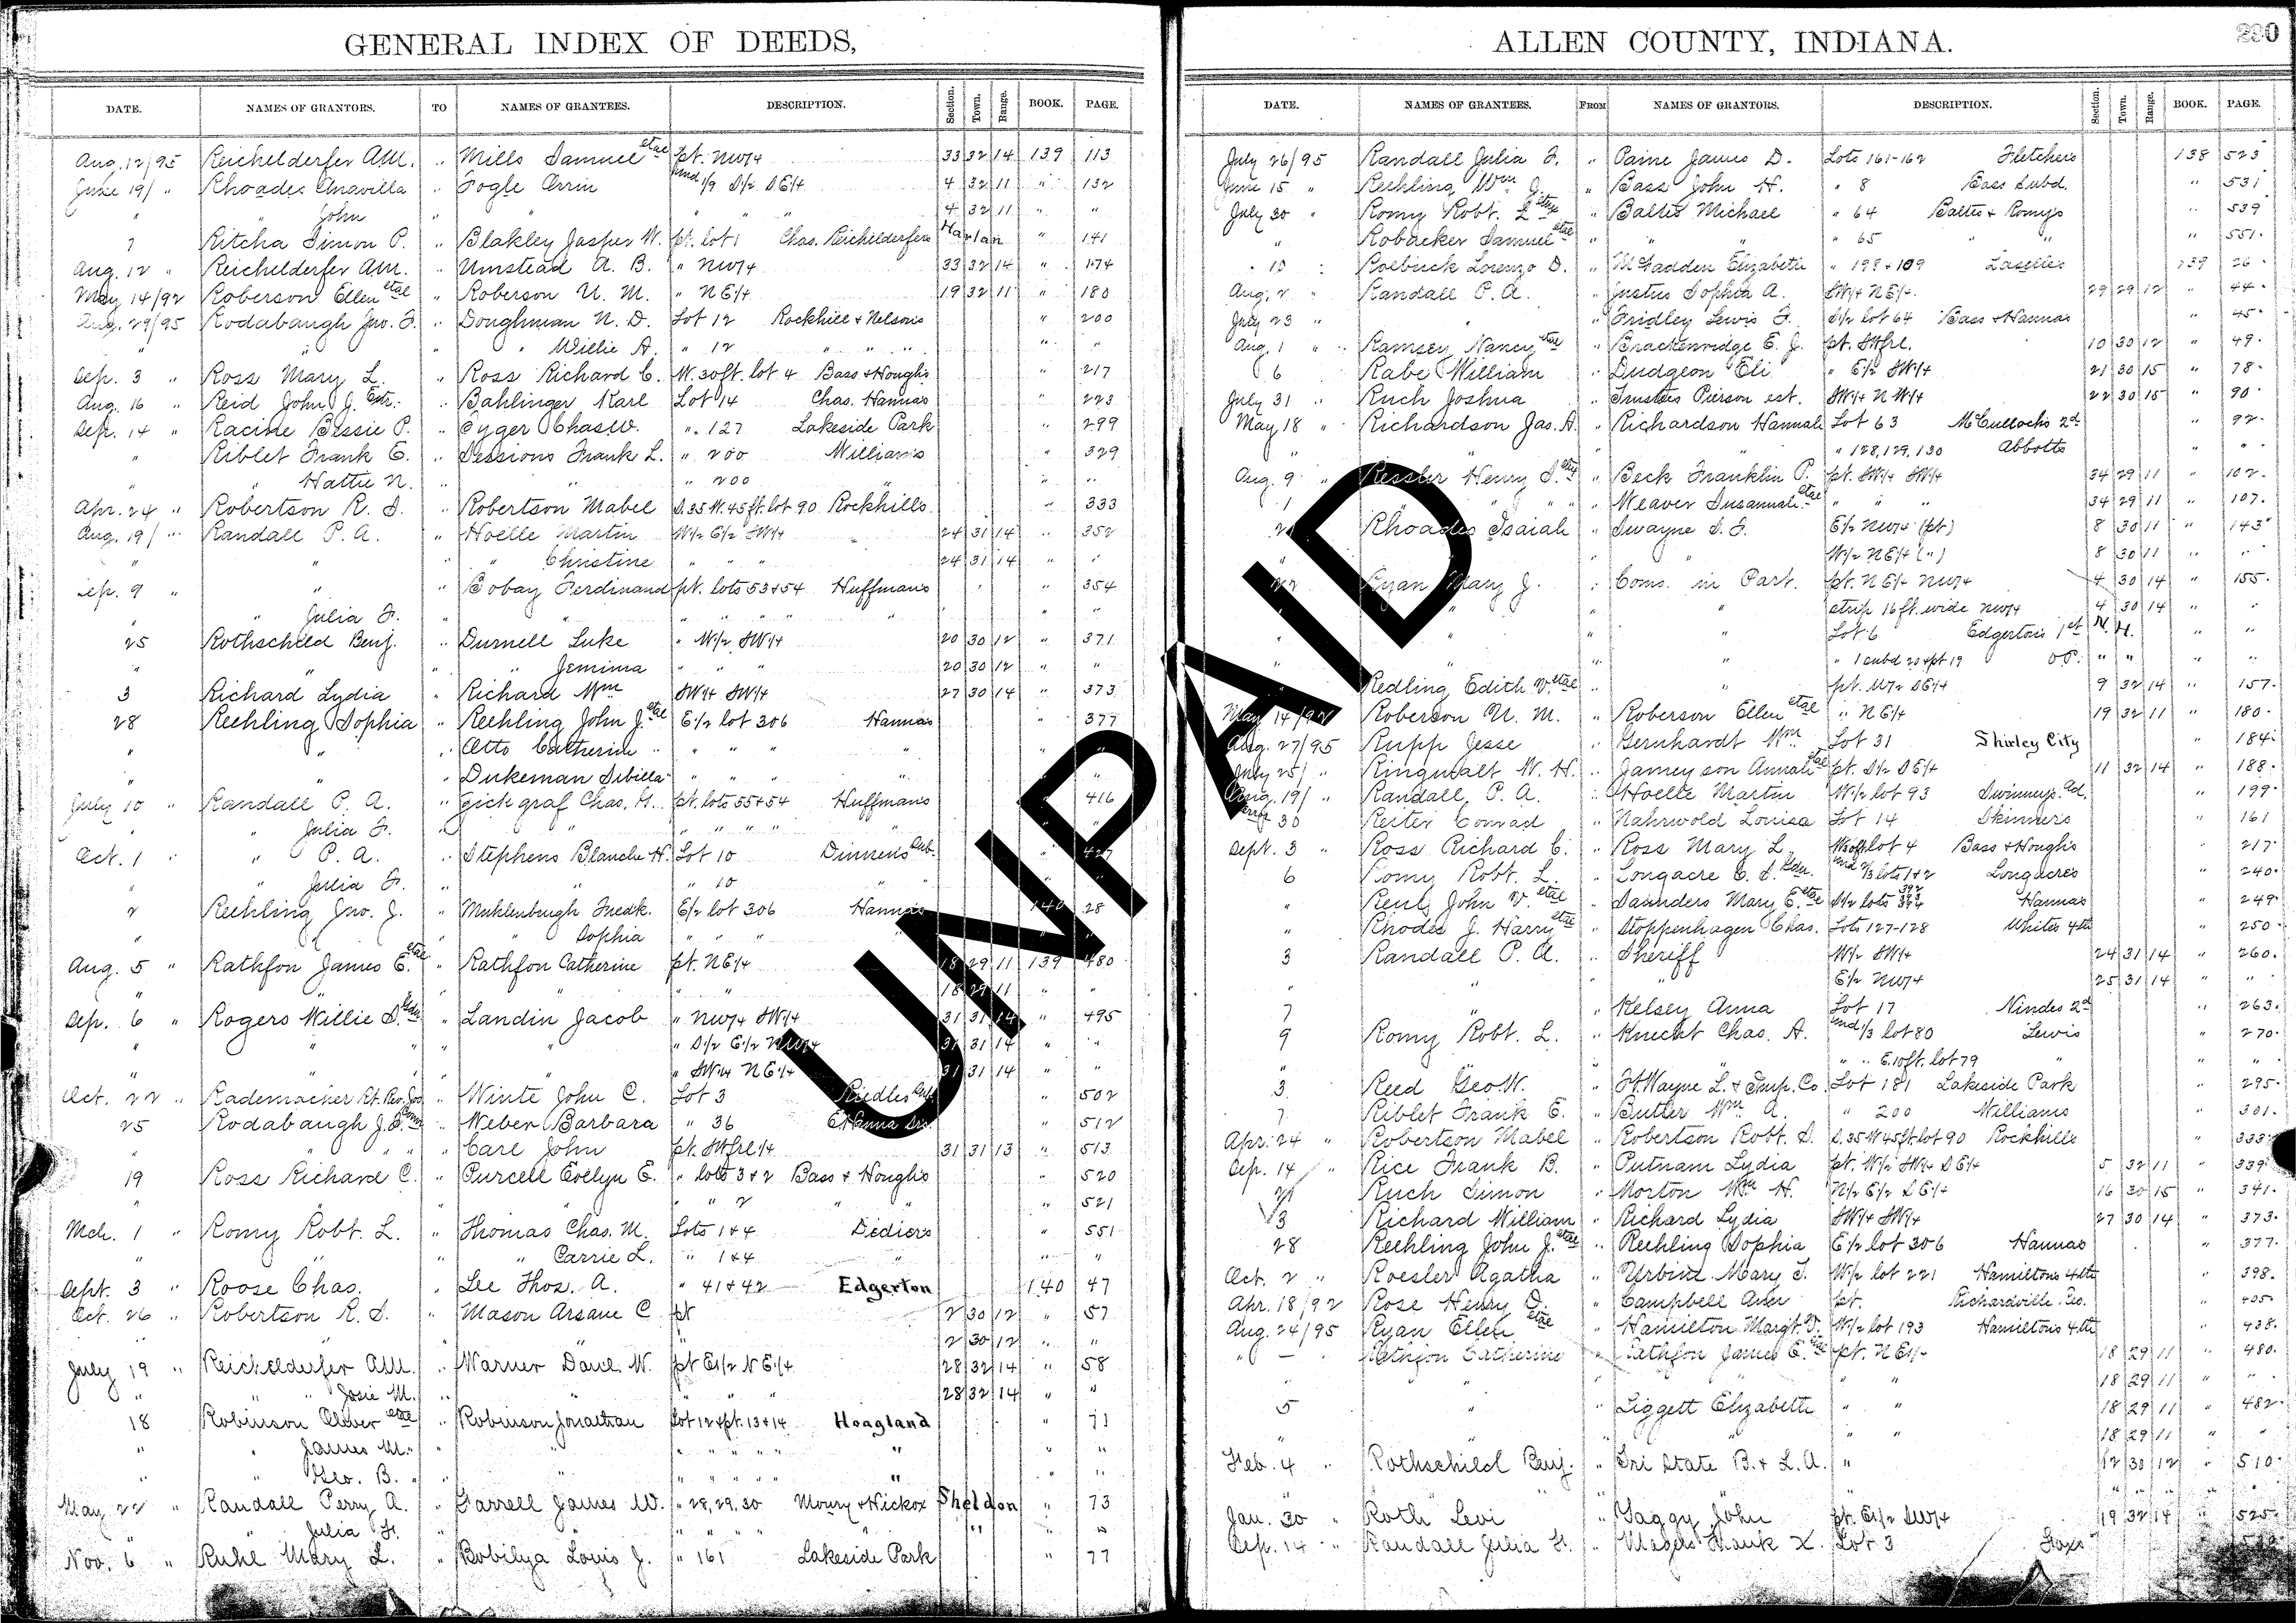 GENERAL INDEX OF DEEDS,
DATE. NAMES OF GRANTORS. TO NAMES OF GRANTEES. DESCRIPTION. Section. Town. Range. BOOK. PAGE.
Aug. 12/95 Reichelderfer A.M. " Mills Samuel etal pt. NW/4 33 32 14 139 113
June 19/ " Rhoades Anavilla " Fogle Orrin und 1/9 S/2 SE/4 4 32 11 " 132
" " John " " " " " 4 32 11 " "
7 Ritcha Simon P. " Blakley Jasper W. pt. lot 1 Chas. Reichelderfers Harlan " 141
Aug. 12 " Reichelderfer A.M. " Umstead A. B. " NW/4 33 32 14 " 174
May 14/92 Roberson Ellen etal " Roberson U. M. " NE/4 19 32 11 " 180
Aug. 29/95 Rodabaugh Jno. F. " Doughman N. D. Lot 12 Rockhill & Nelsons " 200
" " " " Willie A. " 12 " " " " "
Sep. 3 " Ross Mary L. " Ross Richard C. W. 30 ft. lot 4 Bass & Houghs " 217
Aug. 16 " Reid John J. Extr. " Bahlinger Karl Lot 14 Chas. Hannas " 223
Sep. 14 " Racine Bessie P. " Oyger Chas. W. " 127 Lakeside Park " 299
" Riblet Frank E. " Sessions Frank L. " 200 Williams " 329
" " Hattie N. " " " 200 " " "
Apr. 24 " Robertson R. S. " Robertson Mabel S. 35 W. 45 ft. lot 90 Rockhills " 333
Aug. 19/ " Randall P. A. " Hoelle Martin W/2 E/2 SW/4 24 31 14 " 352
" " " " Christine " " " 24 31 14 " "
Sep. 9 " " " Bobay Ferdinand pt. lots 53 & 54 Huffmans " 354
" " Julia F. " " " " " " "
25 Rothschild Benj. " Durnell Luke " W/2 SW/4 20 30 12 " 371
" " " " Jemima " " " 20 30 12 " "
3 Richard Lydia " Richard Wm SW/4 SW/4 27 30 14 " 373
28 Reehling Sophia " Reehling John J. etal E/2 lot 306 Hannas " 377
" " " Otto Catherine " " " " " "
" " " Dukeman Sibilla " " " " " "
July 10 " Randall P. A. " Gickgraf Chas. H. pt. lots 55 & 54 Huffmans " 416
" " Julia F. " " " " " " "
Oct. 1 " " P. A. " Stephens Blanche H. Lot 10 Dinnens Sub. " 427
" " Julia F. " " " 10 " " "
2 Reehling Jno. J. " Muhlenbrugh Fredk. E/2 lot 306 Hannas 140 28
" " " " Sophia " " " " "
Aug. 5 " Rathfon James E. etal " Rathfon Catherine pt. NE/4 18 29 11 139 480
" " " " " " 18 29 11 " "
Sep. 6 " Rogers Willie S. Gdn. " Landin Jacob " NW/4 SW/4 31 31 14 " 495
" " " " " " S/2 E/2 NW/4 31 31 14 " "
" " " " " SW/4 NE/4 31 31 14 " "
Oct. 22 " Rademacher Rt. Rev. Jos. " Winte John C. Lot 3 Riedles Sub. " 502
25 Rodabaugh J. F. Comr. " Weber Barbara " 36 E. Hanna Srs. " 512
" " " " Carl John pt. SW frl/4 31 31 13 " 513
19 Ross Richard C. " Purcell Evelyn E. " lots 3 & 2 Bass & Houghs " 520
" " " " " " 2 " " " 521
Mch. 1 " Romy Robt. L. " Thomas Chas. M. Lots 1 & 4 Didiers " 551
" " " " Carrie L. " 1 & 4 " "
Sept. 3 " Roose Chas. " Lee Thos. A. " 41 & 42 Edgerton 140 47
Oct. 26 " Robertson R. S. " Mason Arsane C. pt 2 30 12 " 57
" " " " " 2 30 12 " "
July 19 " Reichelderfer A.M. " Warner Danl. W. pt E1/2 NE/4 28 32 14 " 58
" " " Josie M. " " " " " 28 32 14 " "
18 Robinson Oliver etal " Robinson Jonathan Lot 12 & pt. 13 & 14 Hoagland " 71
" " James M. " " " " " " " " "
" " Geo. B. " " " " " " " " "
May 22 " Randall Perry A. " Farrell James W. " 28, 29, 30 Moury & Hickox Sheldon " 73
" " Julia F. " " " " " " " " "
Nov. 6 " Ruhl Mary L. " Bobilya Louis J. " 161 Lakeside Park " 77
ALLEN COUNTY, INDIANA.
230
DATE. NAMES OF GRANTEES. FROM NAMES OF GRANTORS. DESCRIPTION. Section. Town. Range. BOOK. PAGE.
July 26/95 Randall Julia F. " Paine James D. Lots 161-162 Fletchers 138 523
June 15 " Reehling Wm J. " Bass John H. " 8 Bass Subd. " 531
July 30 " Romy Robt. L. etux " Baltes Michael " 64 Baltes & Romys " 539
" Robacker Samuel etal " " " " 65 " " " 551
" 10 " Roebuck Lorenzo D. " McFadden Elizabeth " 198 & 109 Laselles 139 26
Aug. 2 " Randall P. A. " Justus Sophia A. SW/4 NE/4. 29 29 12 " 44
July 23 " " " Fridley Lewis F. S/2 lot 64 Bass & Hannas " 45
Aug. 1 " Ramsey Nancy etal " Brackenridge E. J. pt. SW frl. 10 30 12 " 49
6 Rabe William " Dudgeon Eli " E/2 SW/4 21 30 15 " 78
July 31 " Ruch Joshua " Trustees Pierson est. SW/4 NW/4 22 30 15 " 90
May 18 " Richardson Jas. H. " Richardson Hannah Lot 63 McCullochs 2d " 92
" " " " " 128, 129, 130 Abbotts " "
Aug. 9 " Ressler Henry S. etux " Beck Franklin P. pt. SW/4 SW/4 34 29 11 " 102
1 " " Weaver Susannah etal " " " 34 29 11 " 107
Rhoades Isaiah " Swayne S. F. E/2 NW/4 (pt) 8 30 11 " 143
" W/2 NE/4 (") 8 30 11 " "
22 Ryan Mary J. " Coms. in Part. pt. NE/4 NW/4 4 30 14 " 155
" " " strip 16 ft. wide NW/4 4 30 14 " "
" " " Lot 6 Edgertons 1st N. H. " "
" " " 1 subd 20 & pt 19 O.P. " " " "
Redling Edith V. etal " " pt. W/2 SE/4 9 32 14 " 157
May 14/92 Roberson U. M. " Roberson Ellen etal " NE/4 19 32 11 " 180
Aug. 27/95 Rupp Jesse " Gernhardt Wm Lot 31 Shirley City " 184
July 25/ " Ringwalt W. H. " Jameyson Annah etal pt. S/2 SE/4 11 32 14 " 188
Aug. 19/ " Randall P. A. " Hoelle Martin W/2 lot 93 Swinneys Ad. " 199
error 30 Reiter Conrad " Nahrwold Louisa Lot 14 Skinners " 161
Sept. 3 " Ross Richard C. " Ross Mary L. lot 4 Bass & Houghs " 217
6 Romy Robt. L. " Longacre C. S. Gdn. und 2/3 lots 1 & 2 Longacres " 240
" Reul John V. etal " Saunders Mary E. etal S/2 lots 392 393 394 Hannas " 249
" Rhodes J. Harry etal " Stoppenhagen Chas. Lots 127-128 Whites 4th " 250
3 Randall P. A. " Sheriff W/2 SW/4 24 31 14 " 260
" " " " E/2 NW/4 25 31 14 " "
7 " " Kelsey Anna Lot 17 Nindes 2d " 263
9 Romy Robt. L. " Knecht Chas. A. und 1/3 lot 80 Lewis " 270
" " " " " E. 10 ft. lot 79 " " "
3 Reed Geo. W. " Ft. Wayne L. & Imp. Co. Lot 181 Lakeside Park " 295
7 Riblet Frank E. " Butler Wm A. " 200 Williams " 301
Apr. 24 " Robertson Mabel " Robertson Robt. S. S. 35 W 45 ft. lot 90 Rockhills " 333
Sep. 14 " Rice Frank B. " Putnam Lydia pt. W/2 SW/4 SE/4 5 32 11 " 339
21 Ruch Simon " Morton Wm H. N/2 E/2 SE/4 16 30 15 " 341
3 Richard William " Richard Lydia SW/4 SW/4 27 30 14 " 373
28 Reehling John J. etal " Reehling Sophia E/2 lot 306 Hannas " 377
Oct. 2 " Roesler Agatha " Urbine Mary T. W/2 lot 221 Hamiltons 4th " 398
Apr. 18/92 Rose Henry D. " Campbell pt. Richardville Res. " 405
Aug. 24/95 Ryan Ellen etal " Hamilton Margt. V. W/2 lot 193 Hamiltons 4th " 438
" — Rathfon Catherine " Rathfon James E. etal pt. NE/4 18 29 11 " 480
" " " 18 29 11 " "
5 " " Liggett Elizabeth " " 18 29 11 " 482
" " " " " 18 29 11 " "
Feb. 4 " Rothschild Benj. " Tri State B. & L. A. " 12 30 12 " 510
Jan. 30 " Roth Levi " Gaggy John pt. E1/2 SW/4 19 32 14 " 525
Sep. 14 " Randall Julia F. " Frank X. Lot 3
UNPAID